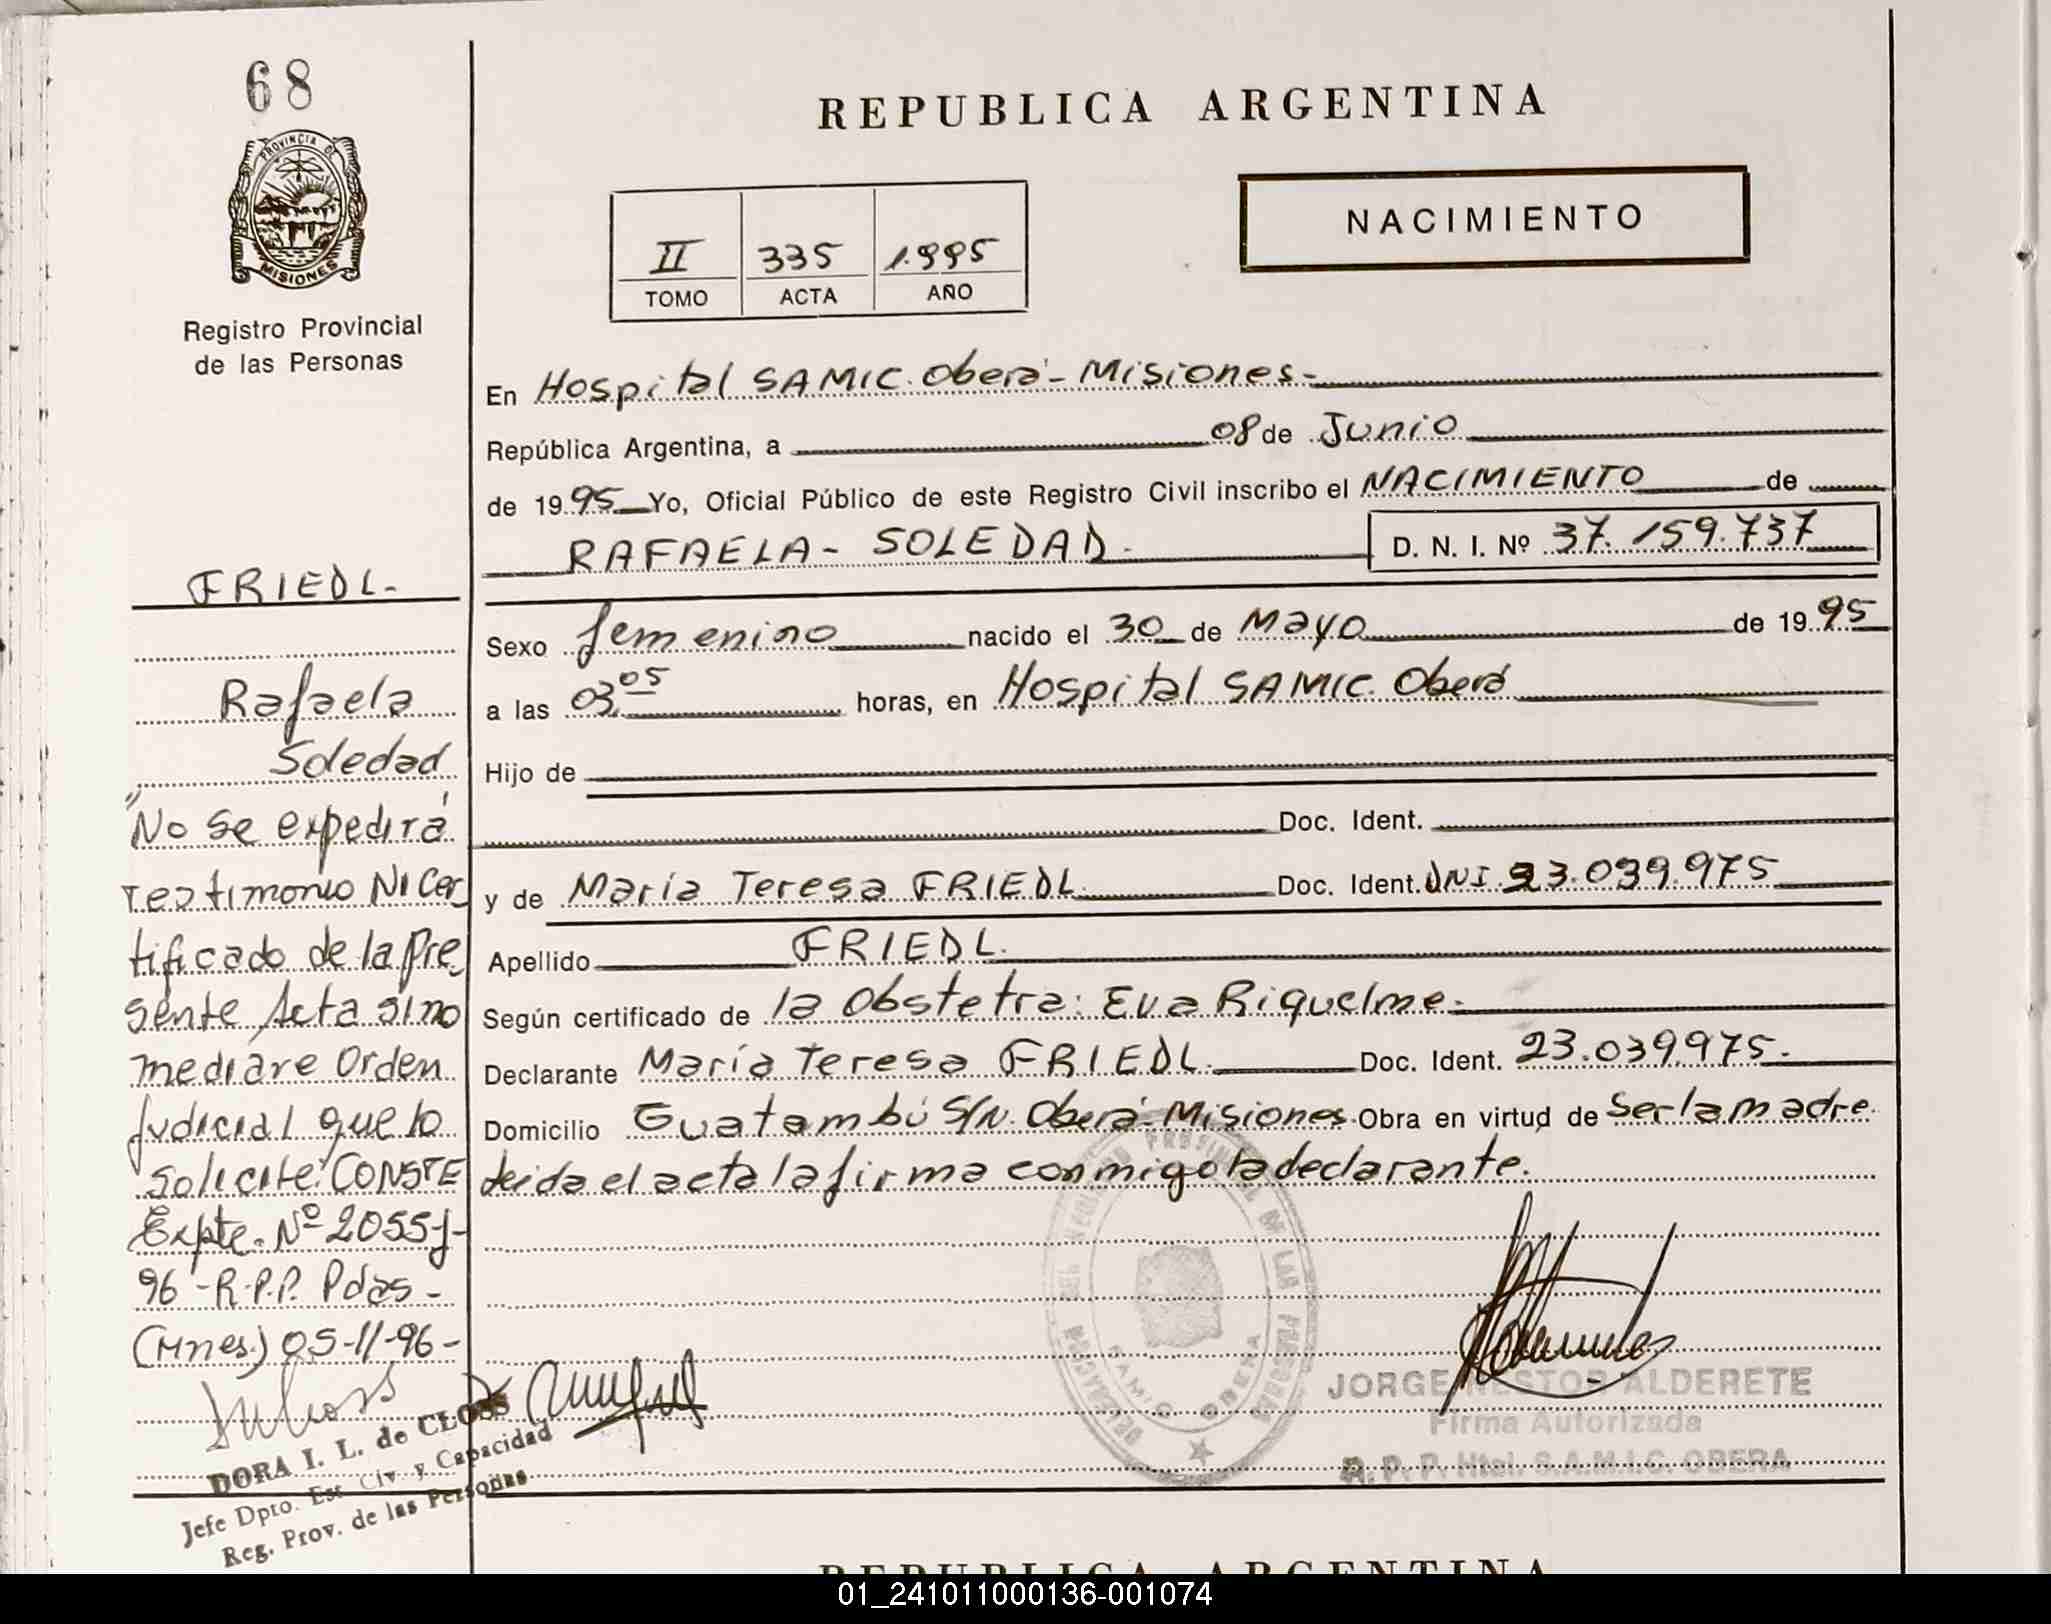 68
PROVINCIA DE
MISIONES
Registro Provincial
de las Personas
FRIEDL.
Rafaela
Soledad
"No se expedirá
testimonio Ni Cer
tificado de la Pre
sente Acta sino
mediare Orden
Judicial que lo
Solicite" CONSTE
Expte. Nº 2055-J-
96-R.P.P. Pdas-
(Mnes.) 05-11-96-
DORA I. L. de CLOSS
Jefe Dpto. Est. Civ. y Capacidad
Reg. Prov. de las Personas
REPUBLICA ARGENTINA
NACIMIENTO
II 335 1.995
TOMO ACTA AÑO
En Hospital SAMIC. Oberá - Misiones-
República Argentina, a 08 de Junio
de 1995 Yo, Oficial Público de este Registro Civil inscribo el NACIMIENTO de
RAFAELA - SOLEDAD. D. N. I. Nº 37.159.737
Sexo femenino nacido el 30 de Mayo de 1995
a las 03.05 horas, en Hospital SAMIC. Oberá
Hijo de
Doc. Ident.
y de María Teresa FRIEDL. Doc. Ident. DNI. 23.039.975
Apellido FRIEDL.
Según certificado de la Obstetra: Eva Riquelme.
Declarante María Teresa FRIEDL. Doc. Ident. 23.039.975.
Domicilio Guatambú S/N. Oberá - Misiones. Obra en virtud de Ser la madre.
Leida el acta la firma conmigo la declarante.
JORGE NESTOR ALDERETE
Firma Autorizada
R. P. P. Htal. S.A.M.I.C. OBERA
REPUBLICA ARGENTINA
01_241011000136-001074